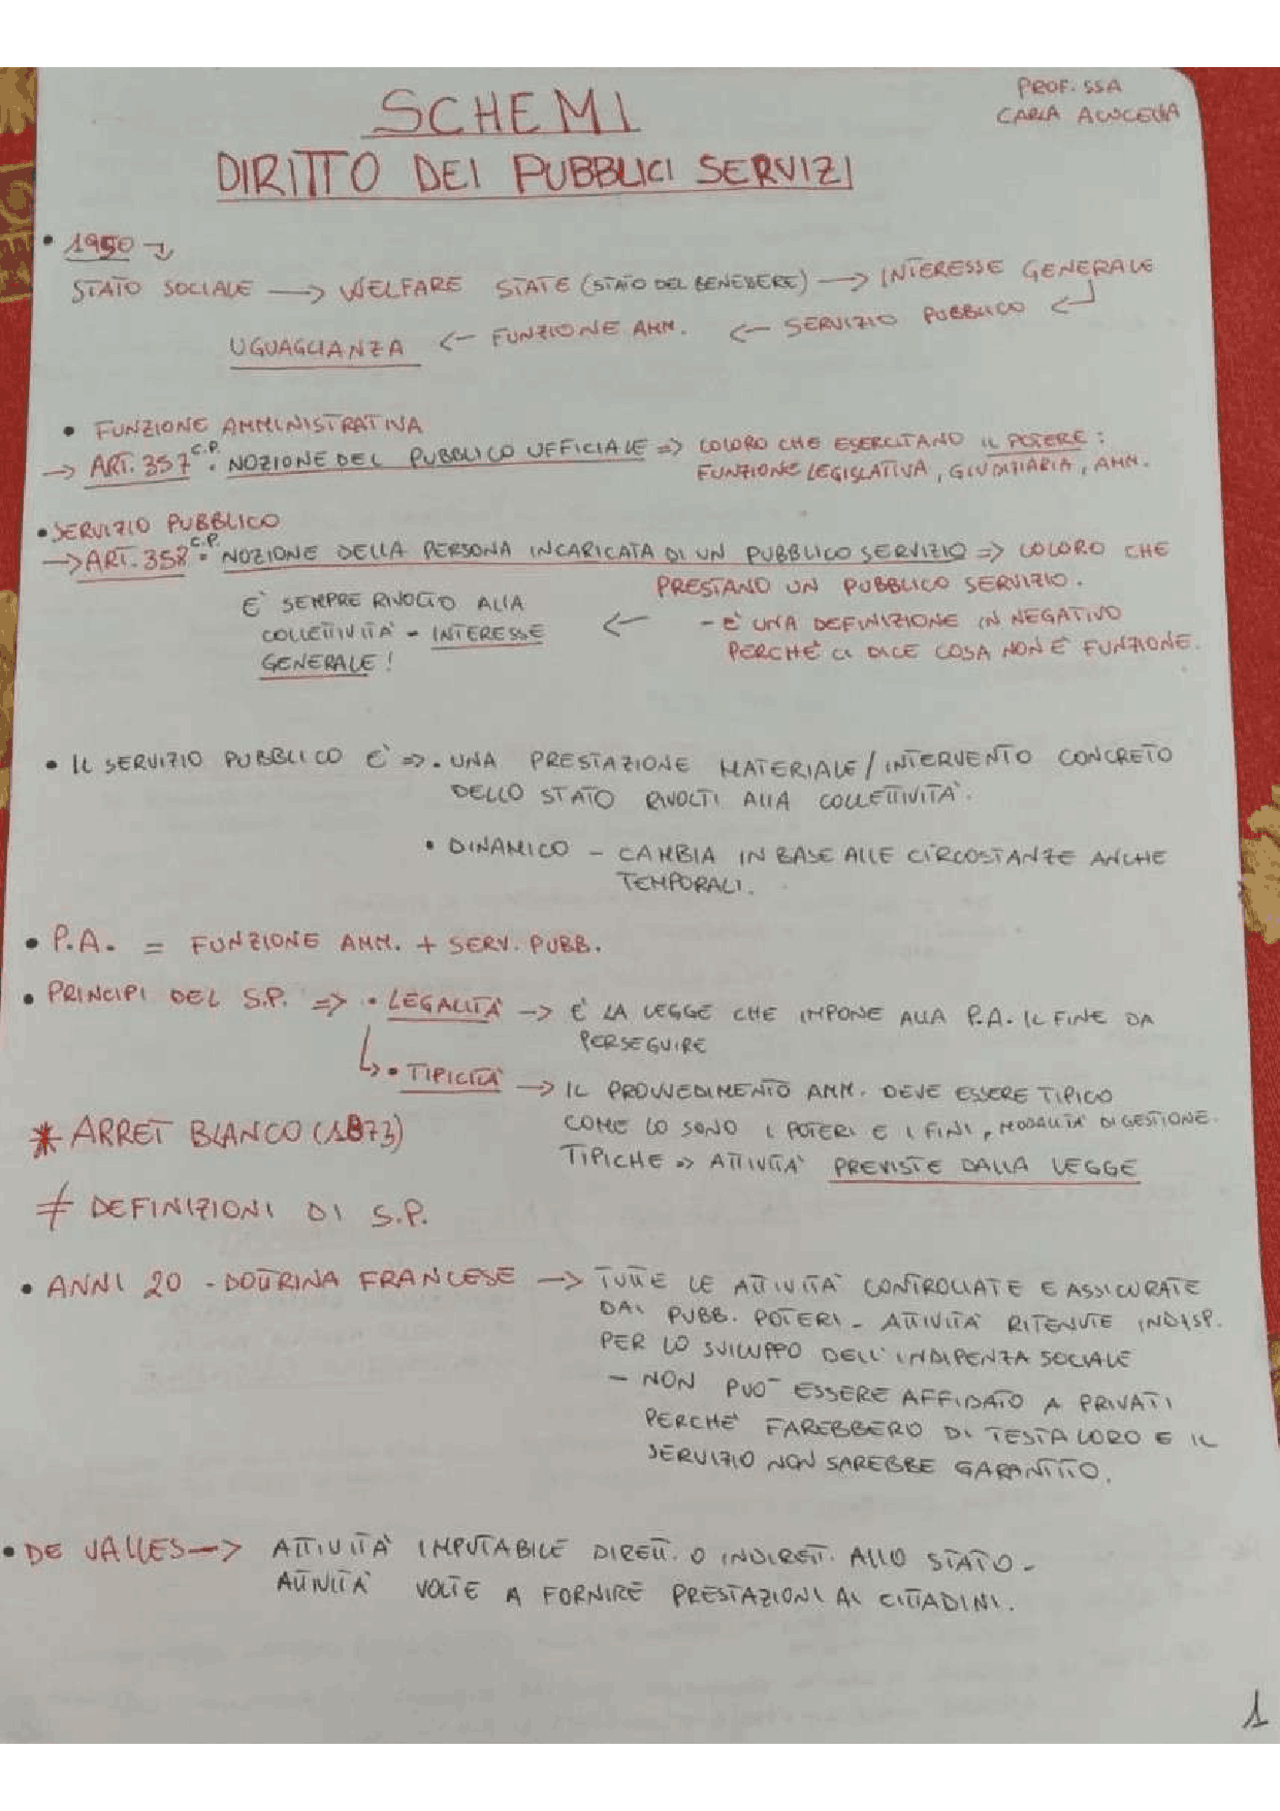 PROF. SSA
CARLA ACOCELLA
SCHEMI
DIRITTO DEI PUBBLICI SERVIZI
• 1950
STATO SOCIALE → WELFARE STATE (STATO DEL BENESSERE) → INTERESSE GENERALE
UGUAGLIANZA ← FUNZIONE AMM. ← SERVIZIO PUBBLICO ←
• FUNZIONE AMMINISTRATIVA
→ ART. 357 C.P. : NOZIONE DEL PUBBLICO UFFICIALE => COLORO CHE ESERCITANO IL POTERE :
FUNZIONE LEGISLATIVA, GIUDIZIARIA, AMM.
• SERVIZIO PUBBLICO
→ ART. 358 C.P. : NOZIONE DELLA PERSONA INCARICATA DI UN PUBBLICO SERVIZIO => COLORO CHE
PRESTANO UN PUBBLICO SERVIZIO.
- E' UNA DEFINIZIONE IN NEGATIVO
PERCHÉ CI DICE COSA NON È FUNZIONE.
← E' SEMPRE RIVOLTO ALLA
COLLETTIVITÀ - INTERESSE
GENERALE!
• IL SERVIZIO PUBBLICO E' => • UNA PRESTAZIONE MATERIALE / INTERVENTO CONCRETO
DELLO STATO RIVOLTI ALLA COLLETTIVITÀ.
• DINAMICO - CAMBIA IN BASE ALLE CIRCOSTANZE ANCHE
TEMPORALI.
• P.A. = FUNZIONE AMM. + SERV. PUBB.
• PRINCIPI DEL S.P. => • LEGALITÀ → E' LA LEGGE CHE IMPONE ALLA P.A. IL FINE DA
PERSEGUIRE
• TIPICITÀ → IL PROVVEDIMENTO AMM. DEVE ESSERE TIPICO
COME LO SONO I POTERI E I FINI, MODALITÀ DI GESTIONE.
TIPICHE => ATTIVITÀ PREVISTE DALLA LEGGE
* ARRET BLANCO (1873)
≠ DEFINIZIONI DI S.P.
• ANNI 20 - DOTTRINA FRANCESE → TUTTE LE ATTIVITÀ CONTROLLATE E ASSICURATE
DAI PUBB. POTERI - ATTIVITÀ RITENUTE INDISP.
PER LO SVILUPPO DELL'INDIPENZA SOCIALE
- NON PUO' ESSERE AFFIDATO A PRIVATI
PERCHÉ FAREBBERO DI TESTA LORO E IL
SERVIZIO NON SAREBBE GARANTITO.
• DE VALLES → ATTIVITÀ IMPUTABILE DIRETT. O INDIRETT. ALLO STATO -
ATTIVITÀ VOLTE A FORNIRE PRESTAZIONI AI CITTADINI.
1